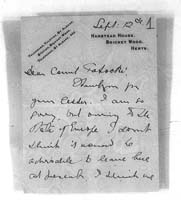 Sept: 12th
HANSTEAD HOUSE,
BRICKET WOOD,
HERTS.
Dear Count
Thank you for
your letter. I am so
sorry, but owing to the
State of Europe I don't
think is
advisable to leave here
at present. I think we